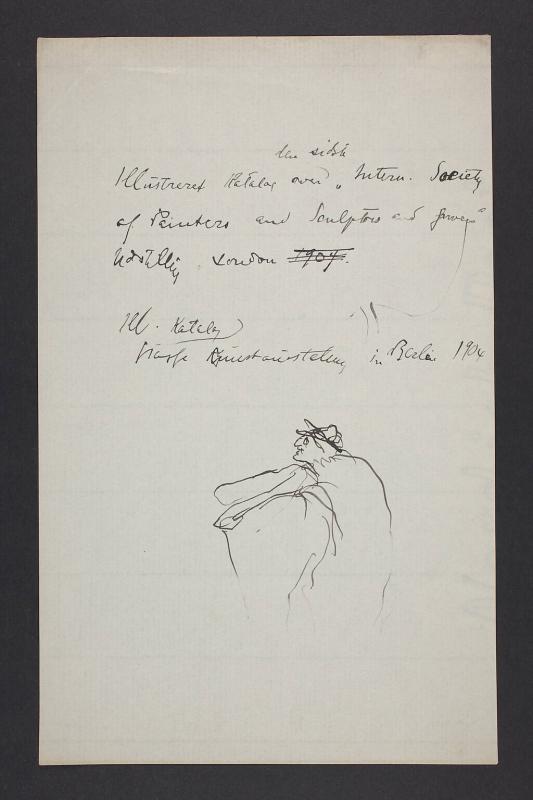 den sidste
Illustreret Katalog over „Intern. Society
of Painters and Sculptors and Gravers"
Udstilling London 1904.
Ill. Katalog
Grosse Kunstausstellung in Berlin 1904